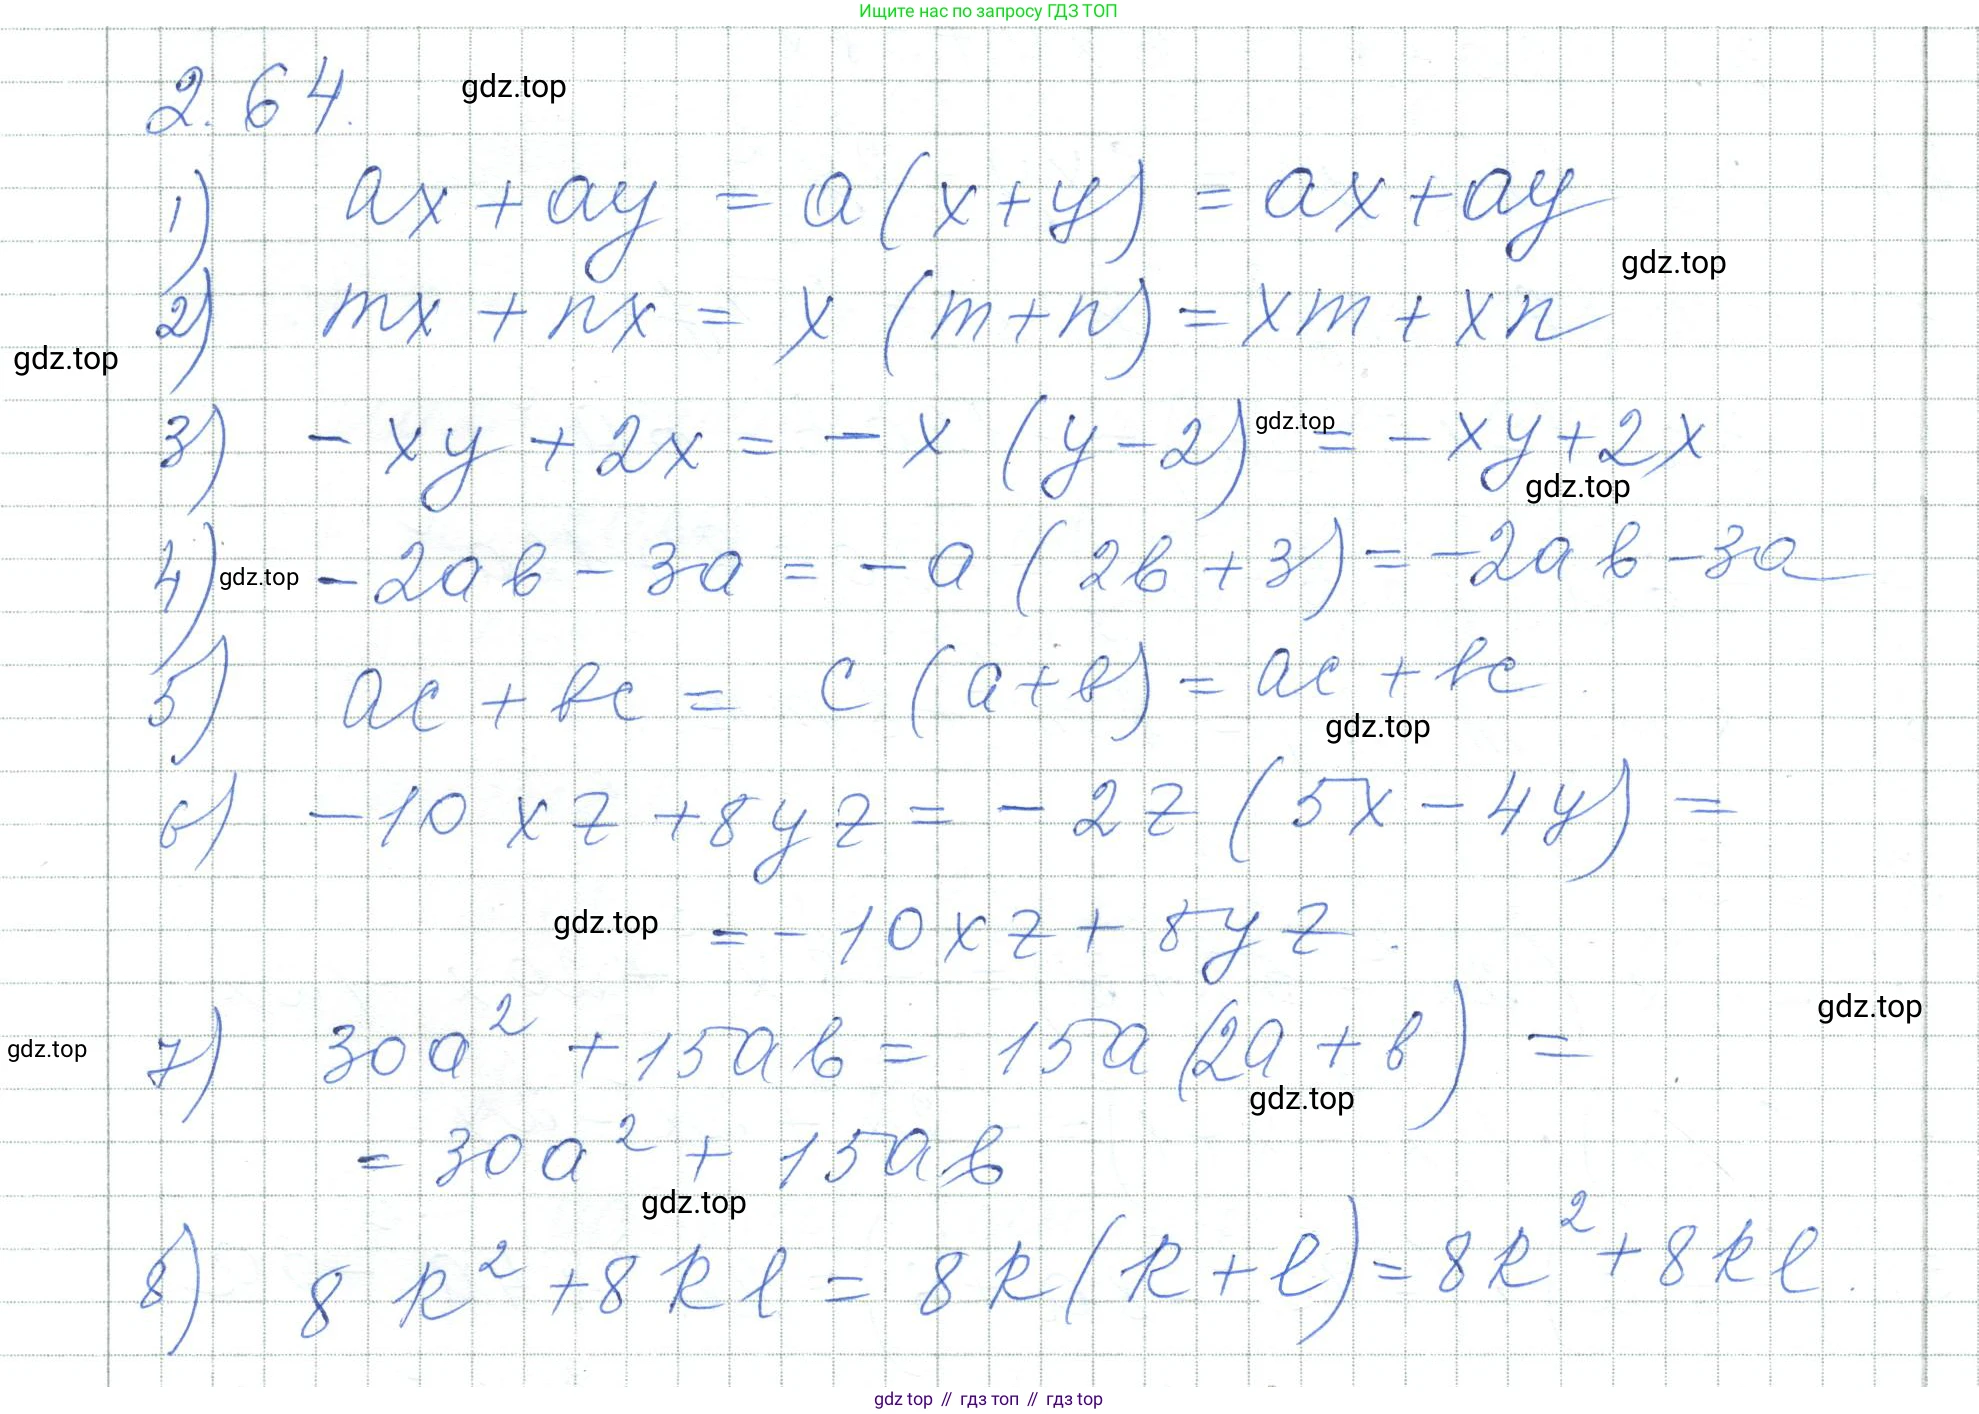 Ищите нас по запросу ГДЗ ТОП
2.64. gdz.top
1) ax + ay = a(x+y) = ax+ay
gdz.top
2) mx + nx = x (m+n) = xm + xn
gdz.top
3) - xy + 2x = - x (y-2) gdz.top = - xy+2x
gdz.top
4) gdz.top - 2ab - 3a = - a (2b+3) = -2ab-3a
5) ac + bc = c (a+b) = ac + bc
gdz.top
6) -10xz +8yz = - 2z (5x - 4y) =
gdz.top = - 10xz + 8yz.
gdz.top
gdz.top 7) 30a² + 15ab = 15a(2a + b) =
gdz.top
= 30a² + 15ab
gdz.top
8) 8k² + 8kl = 8k(k+l) = 8k² + 8kl.
gdz top // гдз топ // гдз top